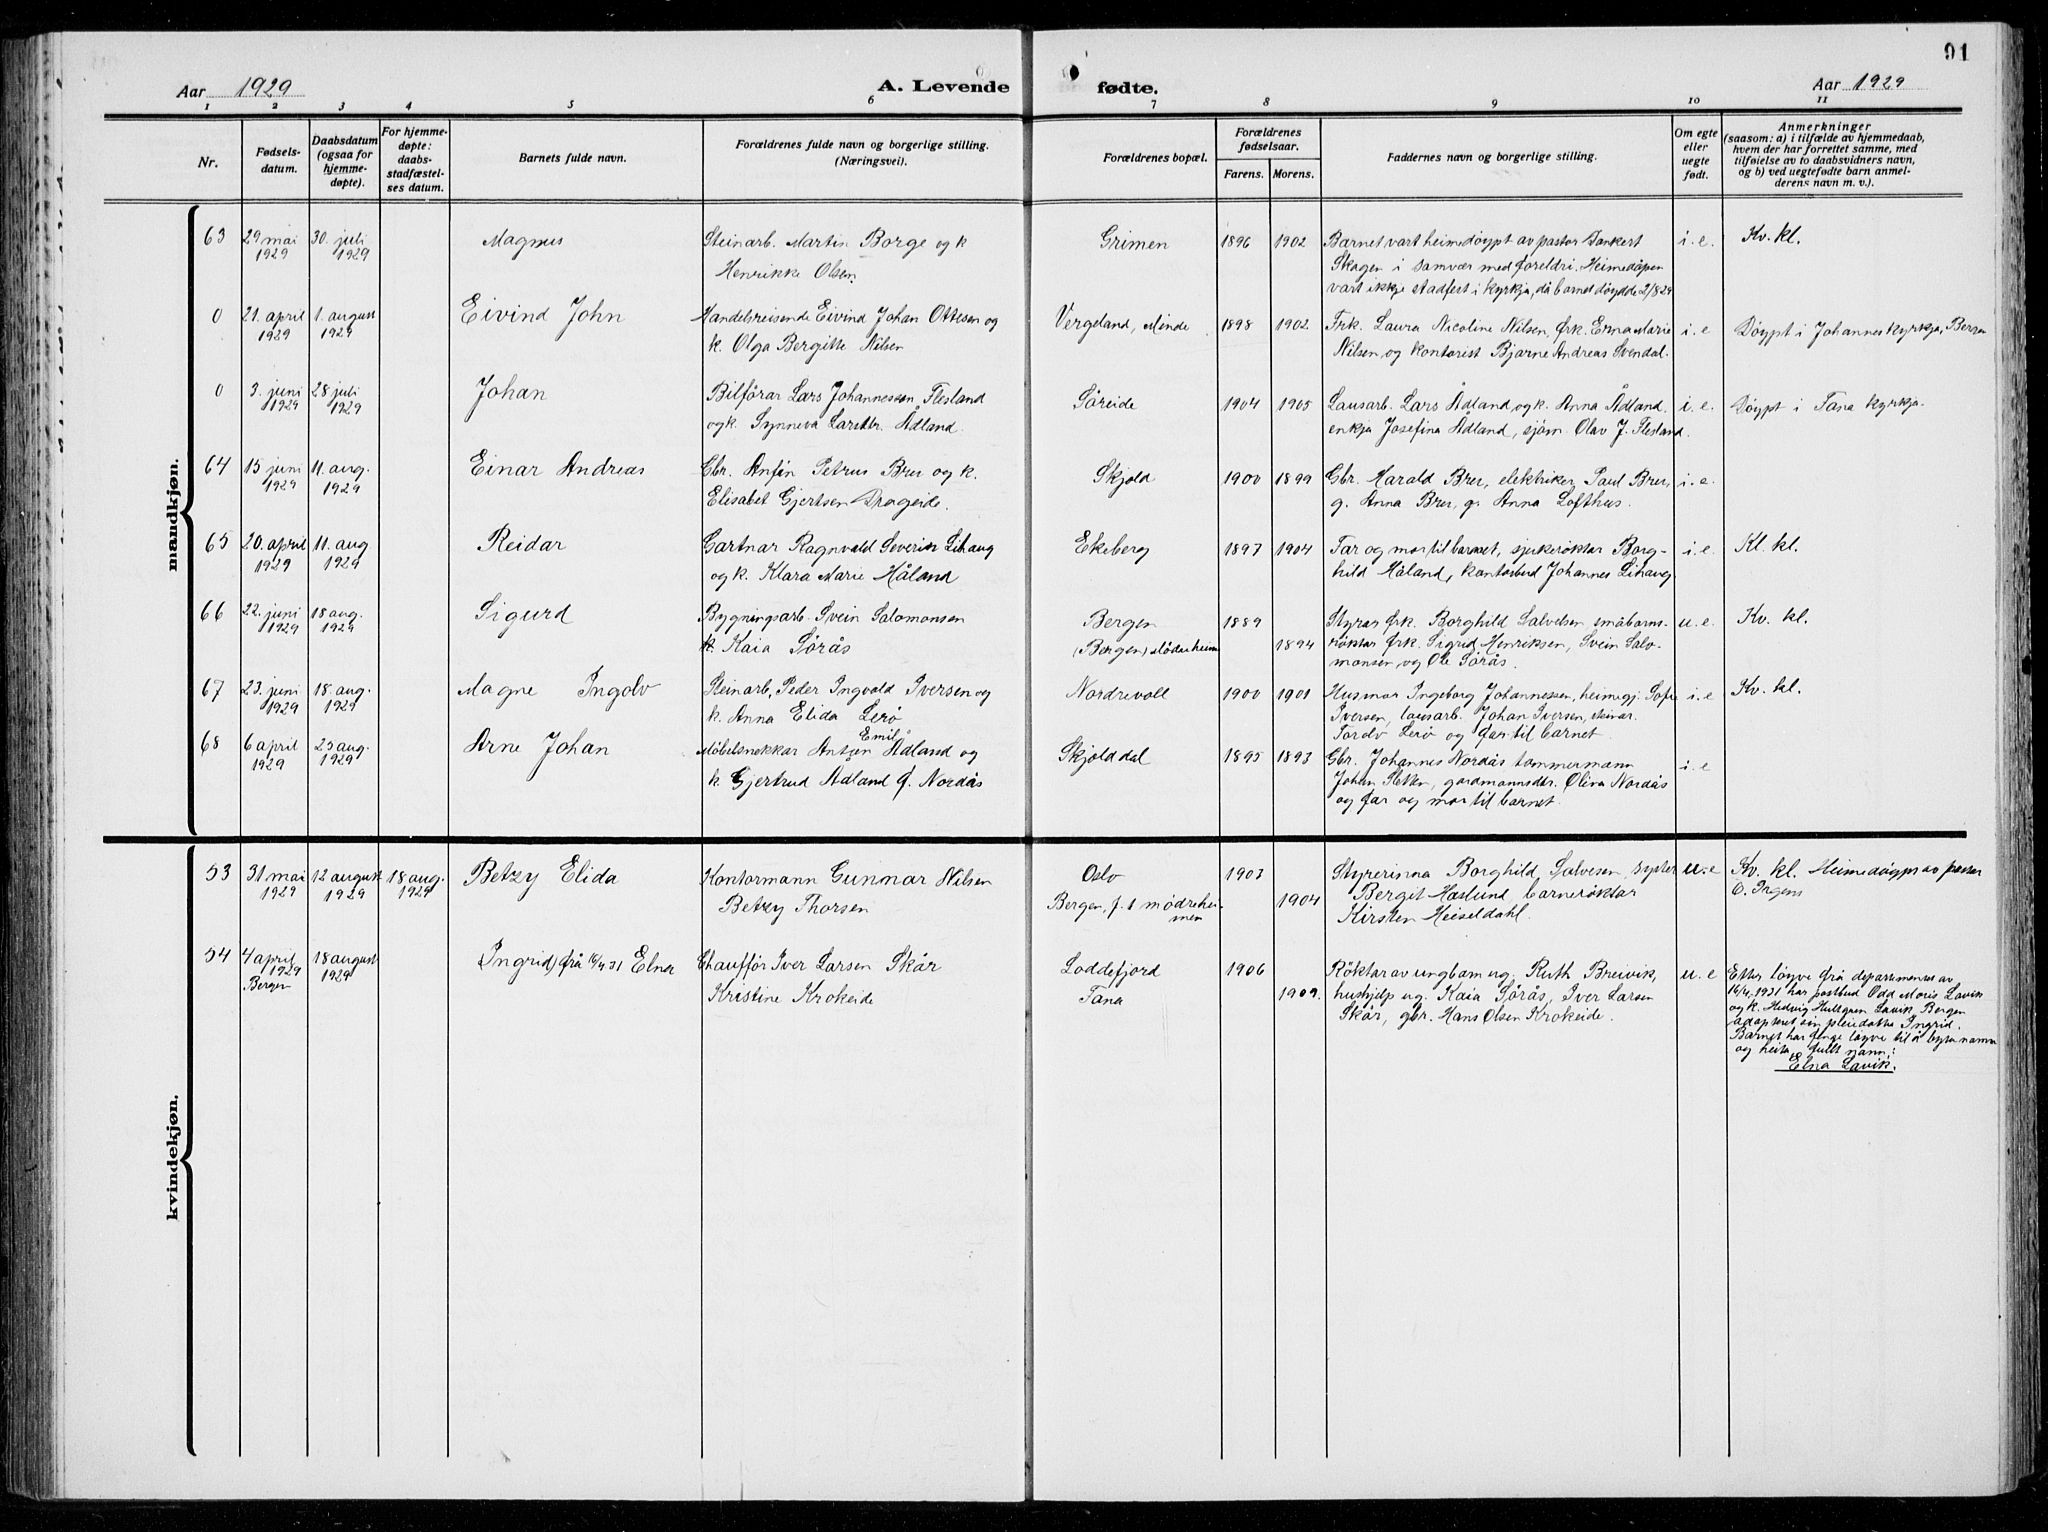 91
Aar 1929 A. Levende fødte. Aar 1929
1 2 3 4 5 6 7 8 9 10 11
Nr.
Fødsels-
datum.
Daabsdatum
(ogsaa for
hjemme-
døpte).
For hjemme-
døpte:
daabs-
stadfæstel-
ses datum.
Barnets fulde navn.
Forældrenes fulde navn og borgerlige stilling.
(Næringsvei).
Forældrenes bopæl.
Forældrenes
fødselsaar.
Farens. Morens.
Faddernes navn og borgerlige stilling.
Om egte
eller
uegte
født.
Anmerkninger
(saasom: a) i tilfælde av hjemmedaab,
hvem der har forrettet samme, med
tilføielse av to daabsvidners navn,
og b) ved uegtefødte barn anmel-
derens navn m. v.).
mandkjøn.
63 29 mai 1929 30. juli 1929 Magnus
Steinarb. Martin Borge og k
Henrikke Olsen.
Grimen 1896 1902
Barnet vart heimedøypt av pastor
Skagen i samvær med foreldri. Heimedåpen
vart ikkje stadfest i kyrkja, då barnet døydde 2/8 29
i. e. Kv. kl.
0 21. april 1929 1. august 1929 Eivind John
Handelsreisende Eivind Johan Ottesen og
k. Olga Bergitte Nilsen
Vergeland, Minde 1898 1902
Frk. Laura Nicoline Nilsen, frk. Erna Marie
Nilsen, og kontorist Bjarne Andreas Svendal.
i. e Døypt i Johanneskyrkja, Bergen
0 3. juni 1929 28 juli 1929 Johan
Bilførar Lars Johannessen Flesland
og k. Synneva Larsdtr. Ådland.
Søreide 1904 1905
Lausarb. Lars Ådland, og k. Anna Ådland,
enkja Josefina Ådland, sjøm. Olav J. Flesland.
i. e. Døypt i Fana kyrkja.
64 15 juni 1929 11. aug. 1929 Einar Andreas
Gbr. Anfin Petrus Brer og k.
Elisabet Gjertsen Drageide.
Skjold 1900 1899
Gbr. Harald Brer, elektriker Paul Brer,
g. Anna Brer, g. Anna Lofthus.
i. e.
65 20. april 1929 11. aug 1929 Reidar
Gartnar Ragnvald Severin Lihaug
og k. Klara Marie Håland
Ekeberg 1897 1904
Far og mor til barnet, sjukerøktar Borg-
hild Håland, kontorbud Johannes Lihaug.
i. e. Kl. kl.
66 22. juni 1929 18 aug. 1929 Sigurd
Bygningsarb. Svein Salomonsen
k. Kaia Sørås
Bergen 1889
(Bergen) Møderheim 1894
Styrar frk. Borghild Salvesen, småbarns-
røktar frk. Sigrid Henriksen, Svein Salo-
monsen, og Ole Sørås.
u. e. Kv. kl.
67 23. juni 1929 18. aug. 1929 Magne Ingolv
Steinarb. Peder Ingvald Iversen og
k. Anna Elida Lerø
Nordrevoll 1900 1901
Husmor Ingeborg Johannessen, heimegj. Sofie
Iversen, lausarb. Johan Iversen,
Tordv Lerø og far til barnet.
i. e Kv. kl.
68 6 april 1929 25 aug. 1929 Arne Johan
Emil
Møbelsnekkar Anton Ådland og
k. Gjertrud Ådland f. Nordås
Skjolddal 1895 1893
Gbr. Johannes Nordås tømmermann
Johan, gardmannsdtr. Oliva Nordås
og far og mor til barnet.
i. e
kvindekjøn.
53 31 mai 1929 12 august 1929 18 aug. 1929 Betzy Elida
Kontormann Gunmar Nilsen
Betzy Thorsen
Oslo 1903
Bergen, f. t mødrehei-
men 1904
Styrerinna Borghild Salvesen, syster
Bergit Høslund barnerøktar
Kirsten Heiseldahl.
u. e Kv. kl. Heimedøypt av pastor
C. Irgens
54 4 april 1929 Bergen 18 august 1929 Ingrid) frå 16/4 31 Elna
Chauffør Iver Larsen Skår
Kristine Krokeide
Loddefjord 1906
Fana 1909.
Røktar av ungbarn ug. Ruth Breivik,
hushjelp ug. Kaia Sørås, Iver Larsen
Skår, gbr. Hans Olsen Krokeide.
u. e
Etter løyve frå departementet av
16/4. 1931 har postbud Odd Moris Lavik
og k. Hedvig Hultgren Lavik, Bergen
adoptert sin pleiedatter Ingrid.
Barnet har fenge løyve til å byta namn
og heita fullt namn:
Elna Lavik.